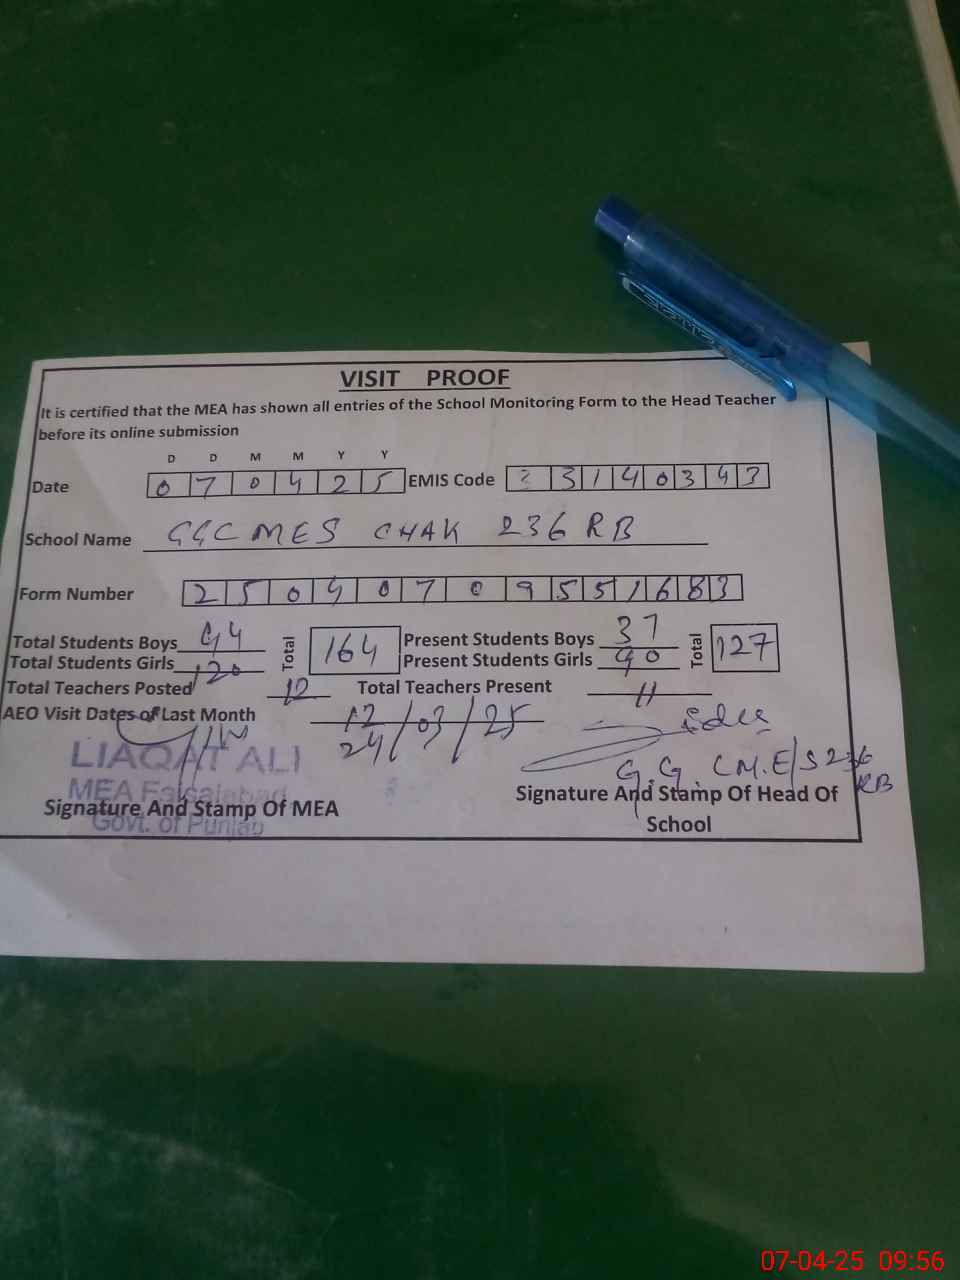 VISIT PROOF
It is certified that the MEA has shown all entries of the School Monitoring Form to the Head Teacher
before its online submission
D D M M Y Y
Date 0 7 0 4 2 5 EMIS Code 3 1 4 0 3 4 3
School Name GGCMES CHAK 236 RB
Form Number 2 5 0 4 0 7 0 9 5 5 1 6 8 3
Total Students Boys 44 Total 164 Present Students Boys 37 Total 127
Total Students Girls 120 Present Students Girls 90
Total Teachers Posted 12 Total Teachers Present 11
AEO Visit Dates of Last Month 12/03/25
24
LIAQAT ALI
MEA Faisalabad
Govt. of Punjab
G.G.CM.E/S 236
RB
Signature And Stamp Of MEA Signature And Stamp Of Head Of
School
07-04-25 09:56